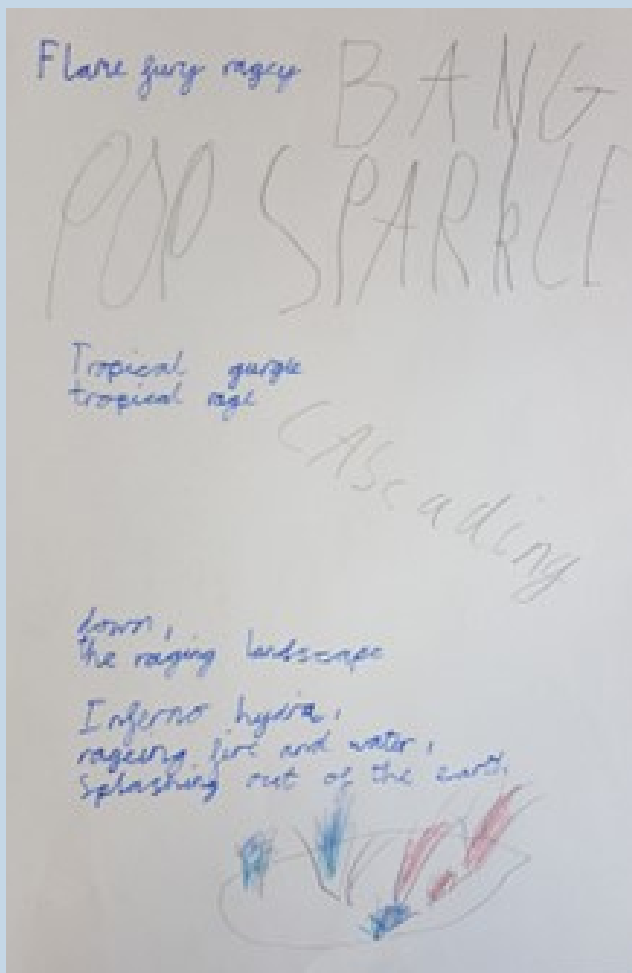 Flare fury ragey
BANG
POP SPARKLE
Tropical gurgle
tropical rage
CAscading
down,
the raging landscape
Inferno hydra,
rageing fire and water,
splashing out of the earth